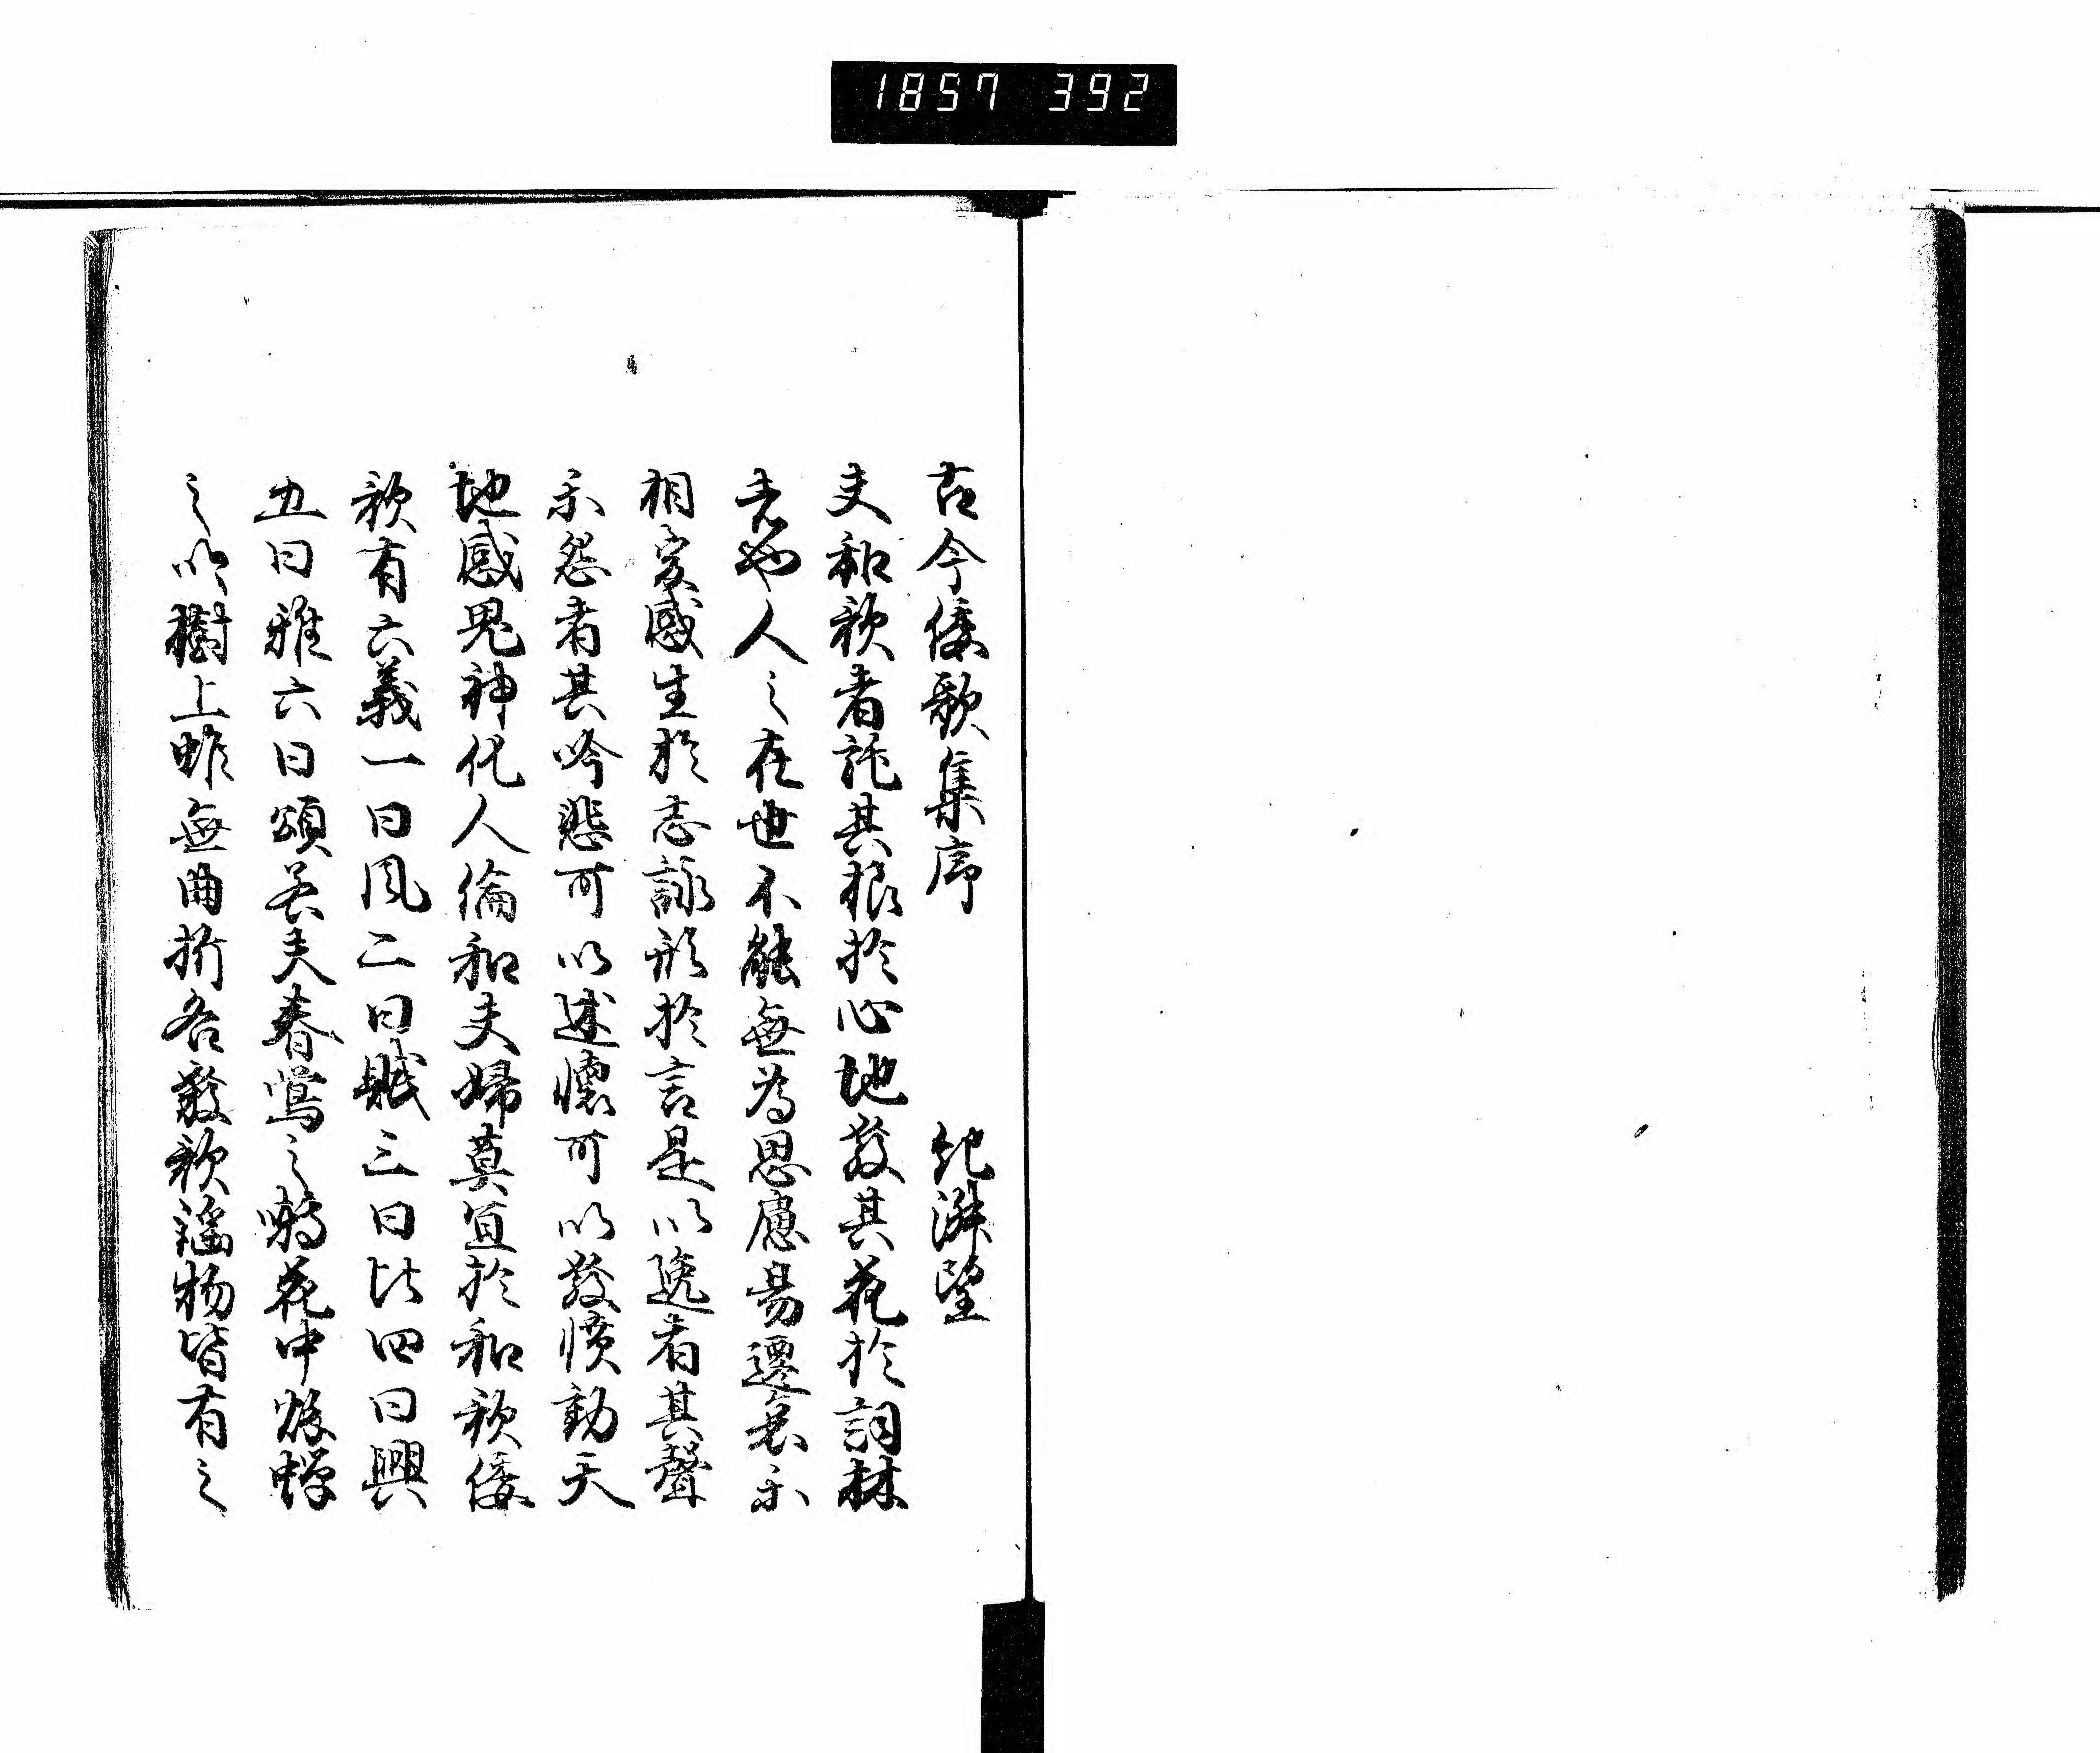 1857 392
古今倭歌集序 紀淑望
夫和歌者託其根於心地發其花於詞林
者也人之在世不能無為思慮易遷哀樂
相変感生於志詠形於言是以逸者其聲
楽怨者其吟悲可以述懐可以發憤動天
地感鬼神化人倫和夫婦莫宜於和歌倭
歌有六義一曰風二曰賦三曰比四曰興
五曰雅六曰頌若夫春鶯之囀花中秋蝉
之吟樹上雖無曲折各發歌謡物皆有之